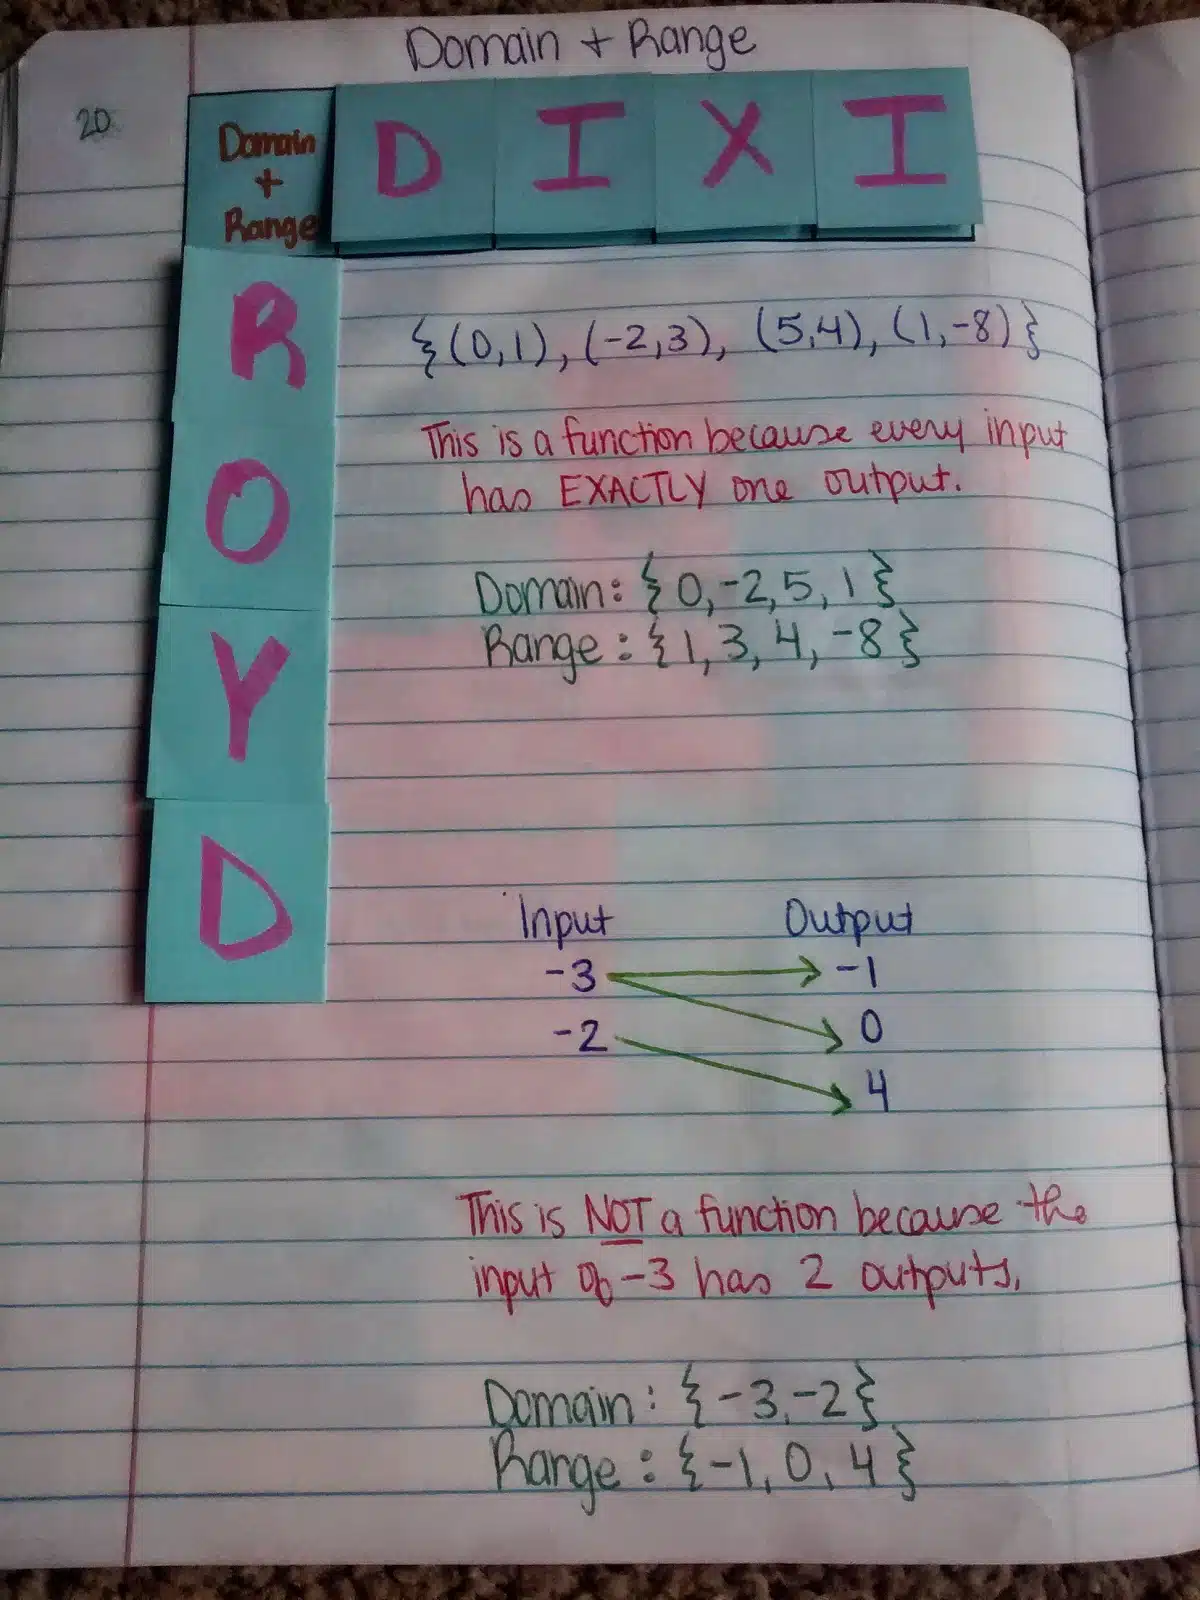 Domain + Range
20
Domain
+
Range
D I X I
R
O
Y
D
{(0,1), (-2,3), (5,4), (1,-8)}
This is a function because every input
has EXACTLY one output.
Domain: {0,-2,5,1}
Range: {1,3,4,-8}
Input Output
-3 -1
-2 0
4
This is NOT a function because the
input of -3 has 2 outputs.
Domain: {-3,-2}
Range: {-1,0,4}